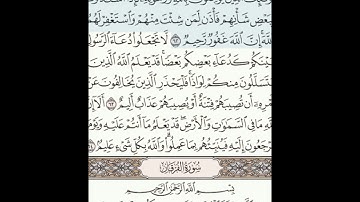 بَعْضِ شَأْنِهِمْ فَأْذَن لِّمَن شِئْتَ مِنْهُمْ وَاسْتَغْفِرْ لَهُمُ
اللَّهَ إِنَّ اللَّهَ غَفُورٌ رَّحِيمٌ ٦٢ لَّا تَجْعَلُوا دُعَاءَ الرَّسُولِ
بَيْنَكُمْ كَدُعَاءِ بَعْضِكُم بَعْضًا قَدْ يَعْلَمُ اللَّهُ الَّذِينَ
يَتَسَلَّلُونَ مِنكُمْ لِوَاذًا فَلْيَحْذَرِ الَّذِينَ يُخَالِفُونَ عَنْ
أَمْرِهِ أَن تُصِيبَهُمْ فِتْنَةٌ أَوْ يُصِيبَهُمْ عَذَابٌ أَلِيمٌ ٦٣ أَلَا إِنَّ
لِلَّهِ مَا فِي السَّمَاوَاتِ وَالْأَرْضِ قَدْ يَعْلَمُ مَا أَنتُمْ عَلَيْهِ وَيَوْمَ
يُرْجَعُونَ إِلَيْهِ فَيُنَبِّئُهُم بِمَا عَمِلُوا وَاللَّهُ بِكُلِّ شَيْءٍ عَلِيمٌ ٦٤
سُورَةُ الْفُرْقَانِ
بِسْمِ اللَّهِ الرَّحْمَٰنِ الرَّحِيمِ